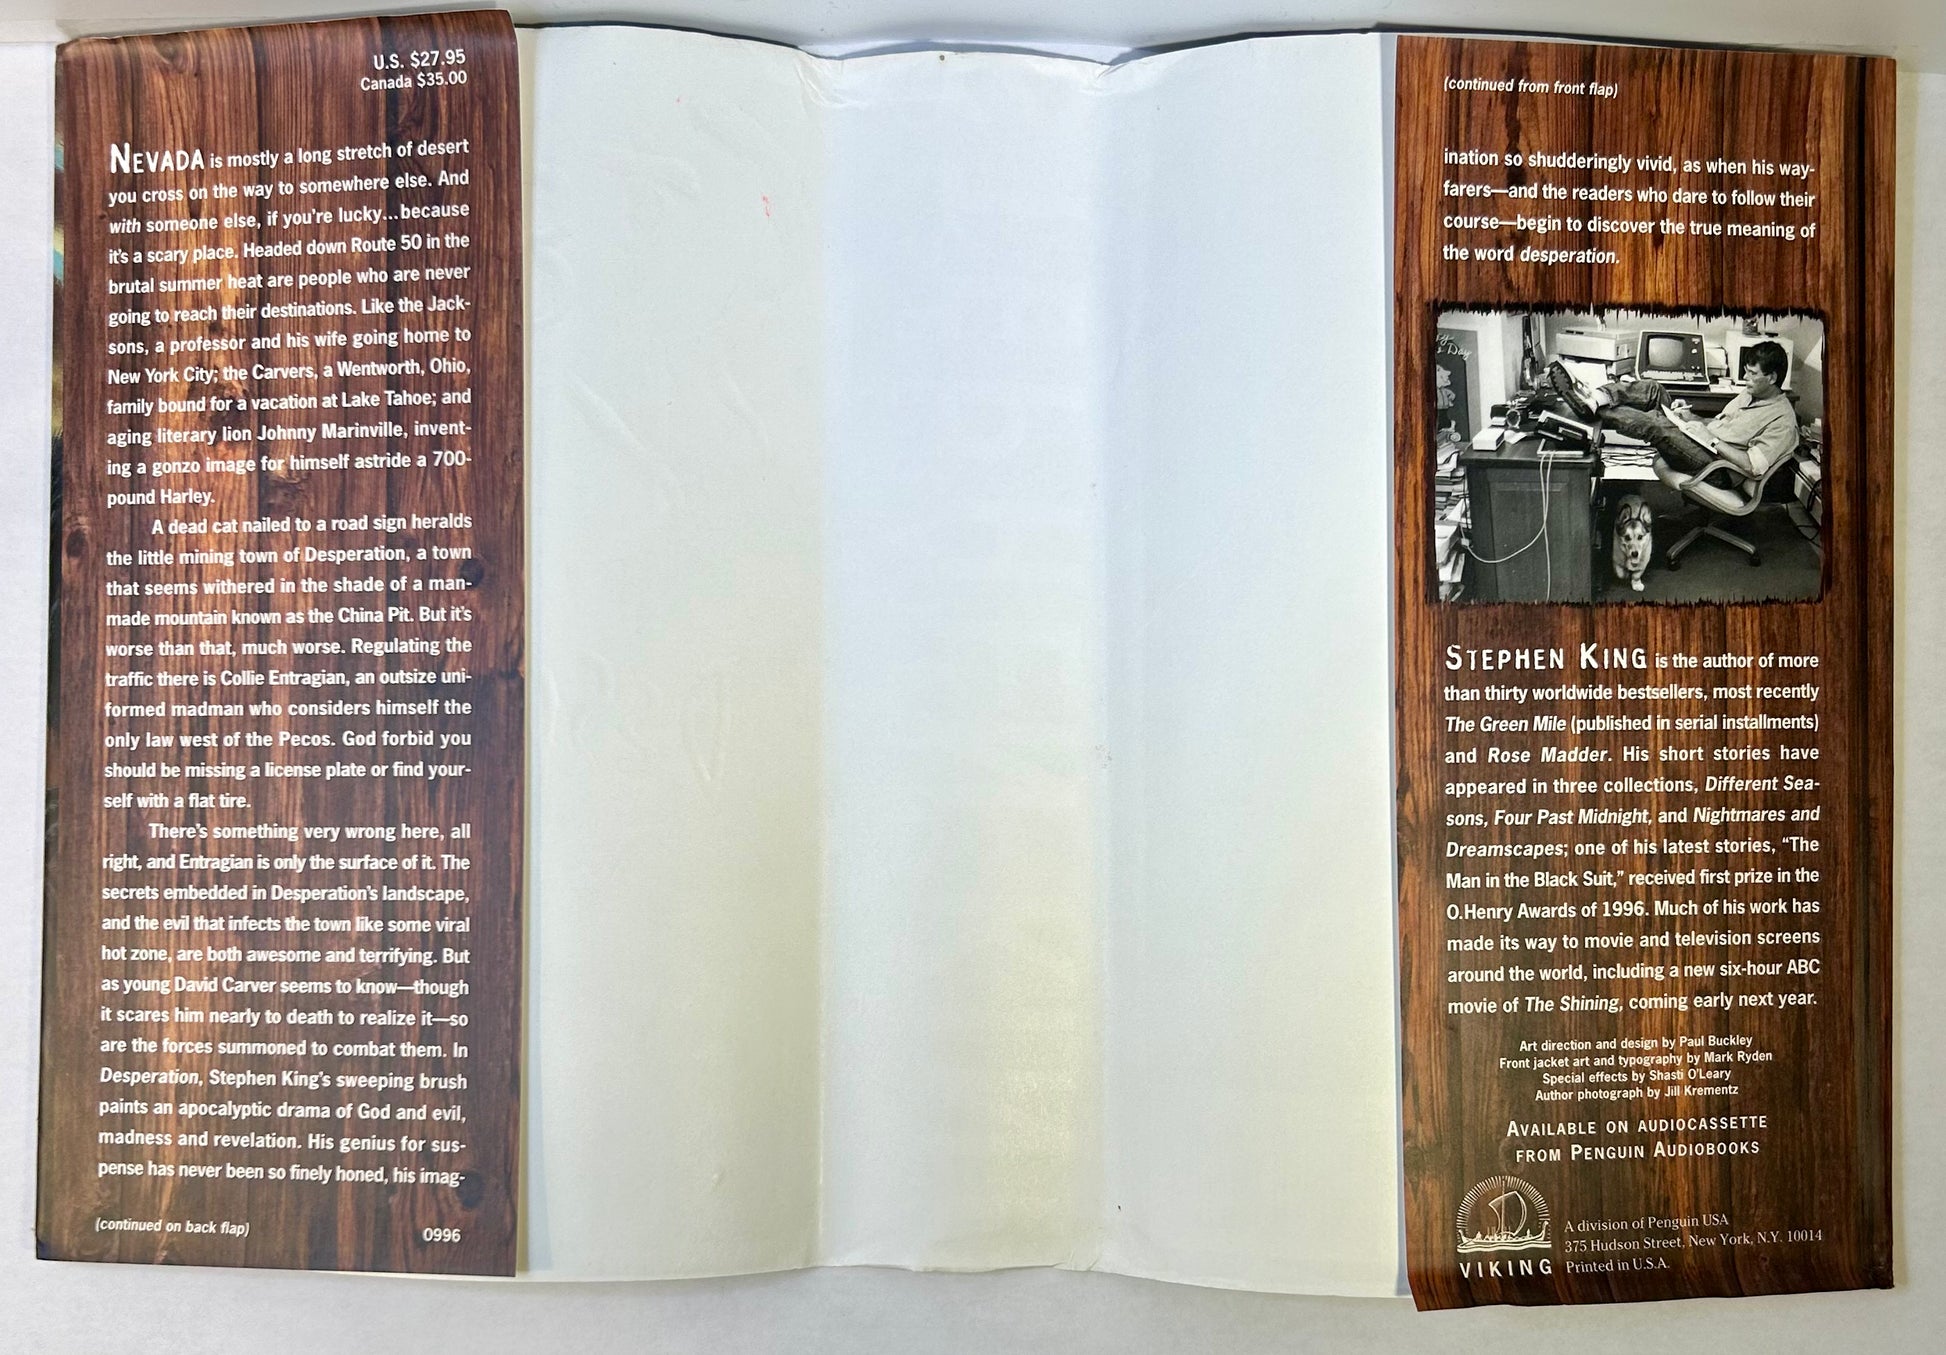 U.S. $27.95
Canada $35.00
NEVADA is mostly a long stretch of desert
you cross on the way to somewhere else. And
with someone else, if you're lucky...because
it's a scary place. Headed down Route 50 in the
brutal summer heat are people who are never
going to reach their destinations. Like the Jack-
sons, a professor and his wife going home to
New York City; the Carvers, a Wentworth, Ohio,
family bound for a vacation at Lake Tahoe; and
aging literary lion Johnny Marinville, invent-
ing a gonzo image for himself astride a 700-
pound Harley.
A dead cat nailed to a road sign heralds
the little mining town of Desperation, a town
that seems withered in the shade of a man-
made mountain known as the China Pit. But it's
worse than that, much worse. Regulating the
traffic there is Collie Entragian, an outsize uni-
formed madman who considers himself the
only law west of the Pecos. God forbid you
should be missing a license plate or find your-
self with a flat tire.
There's something very wrong here, all
right, and Entragian is only the surface of it. The
secrets embedded in Desperation's landscape,
and the evil that infects the town like some viral
hot zone, are both awesome and terrifying. But
as young David Carver seems to know—though
it scares him nearly to death to realize it—so
are the forces summoned to combat them. In
Desperation, Stephen King's sweeping brush
paints an apocalyptic drama of God and evil,
madness and revelation. His genius for sus-
pense has never been so finely honed, his imag-
(continued on back flap)
0996
(continued from front flap)
ination so shudderingly vivid, as when his way-
farers—and the readers who dare to follow their
course—begin to discover the true meaning of
the word desperation.
Day
STEPHEN KING is the author of more
than thirty worldwide bestsellers, most recently
The Green Mile (published in serial installments)
and Rose Madder. His short stories have
appeared in three collections, Different Sea-
sons, Four Past Midnight, and Nightmares and
Dreamscapes; one of his latest stories, "The
Man in the Black Suit," received first prize in the
O.Henry Awards of 1996. Much of his work has
made its way to movie and television screens
around the world, including a new six-hour ABC
movie of The Shining, coming early next year.
Art direction and design by Paul Buckley
Front jacket art and typography by Mark Ryden
Special effects by Shasti O'Leary
Author photograph by Jill Krementz
AVAILABLE ON AUDIOCASSETTE
FROM PENGUIN AUDIOBOOKS
A division of Penguin USA
375 Hudson Street, New York, N.Y. 10014
Printed in U.S.A.
VIKING